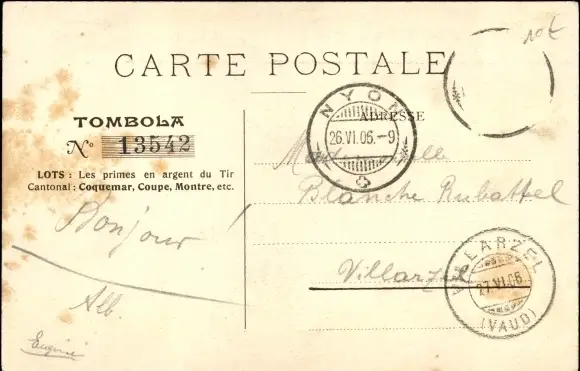 10 €
CARTE POSTALE
NYON
26.VI.06.-9
ADRESSE
TOMBOLA
Nº 13542
LOTS : Les primes en argent du Tir
Cantonal : Coquemar, Coupe, Montre, etc.
Mademoiselle
Blanche Rubattel
Villarzel
Bonjour!
Alb.
Eugénie
VILLARZEL
27.VI.06.
(VAUD)